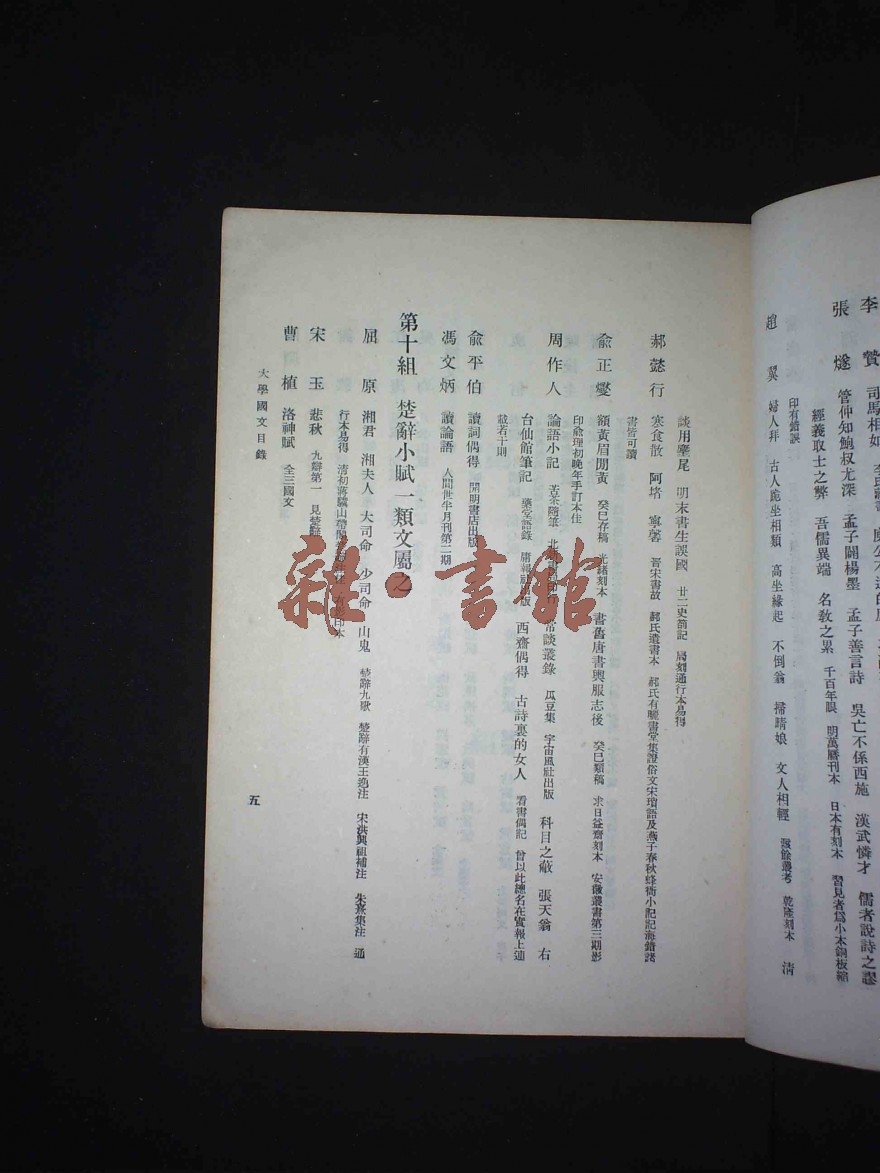 李贄 司馬相如
張燧 管仲知鮑叔尤深 孟子闢楊墨 孟子善言詩 吳亡不係西施 漢武憐才 儒者說詩之謬
經義取士之弊 吾儒異端 名敎之累 千百年眼 明萬曆刊本 日本有刻本 習見者爲小本銅板縮
印有錯誤
趙翼 婦人拜 古人跪坐相類 高坐緣起 不倒翁 掃晴娘 文人相輕 陔餘叢考 乾隆刻本 清
談用麈尾 明末書生誤國 廿二史劄記 局刻通行本易得
郝懿行 寒食散 阿堵 寧馨 晋宋書故 郝氏遺書本 郝氏有曬書堂集證俗文宋瑣語及燕子春秋蜂衙小記記海錯諸
書皆可讀
兪正燮 額黃眉間黃 癸巳存稿 光緒刻本 書舊唐書輿服志後 癸巳類稿 求日益齋刻本 安徽叢書第三期影
印兪理初晚年手訂本佳
周作人 論語小記 苦茶隨筆 北 常談叢錄 瓜豆集 宇宙風社出版 科目之敝 張天翁 右
台仙館筆記 藥堂語錄 庸報社出版 西齋偶得 古詩裏的女人 看書偶記 曾以此總名在實報上連
載若干則
兪平伯 讀詞偶得 開明書店出版
馮文炳 讀論語 人間世半月刊第二期
第十組 楚辭小賦一類文屬之
屈原 湘君 湘夫人 大司命 少司命 山鬼 楚辭九歌 楚辭有漢王逸注 宋洪興祖補注 朱熹集注 通
行本易得 清初蔣驥山帶閣 印本
宋玉 悲秋 九辯第一 見楚辭
曹植 洛神賦 全三國文
大學國文目錄
五
雜·書館